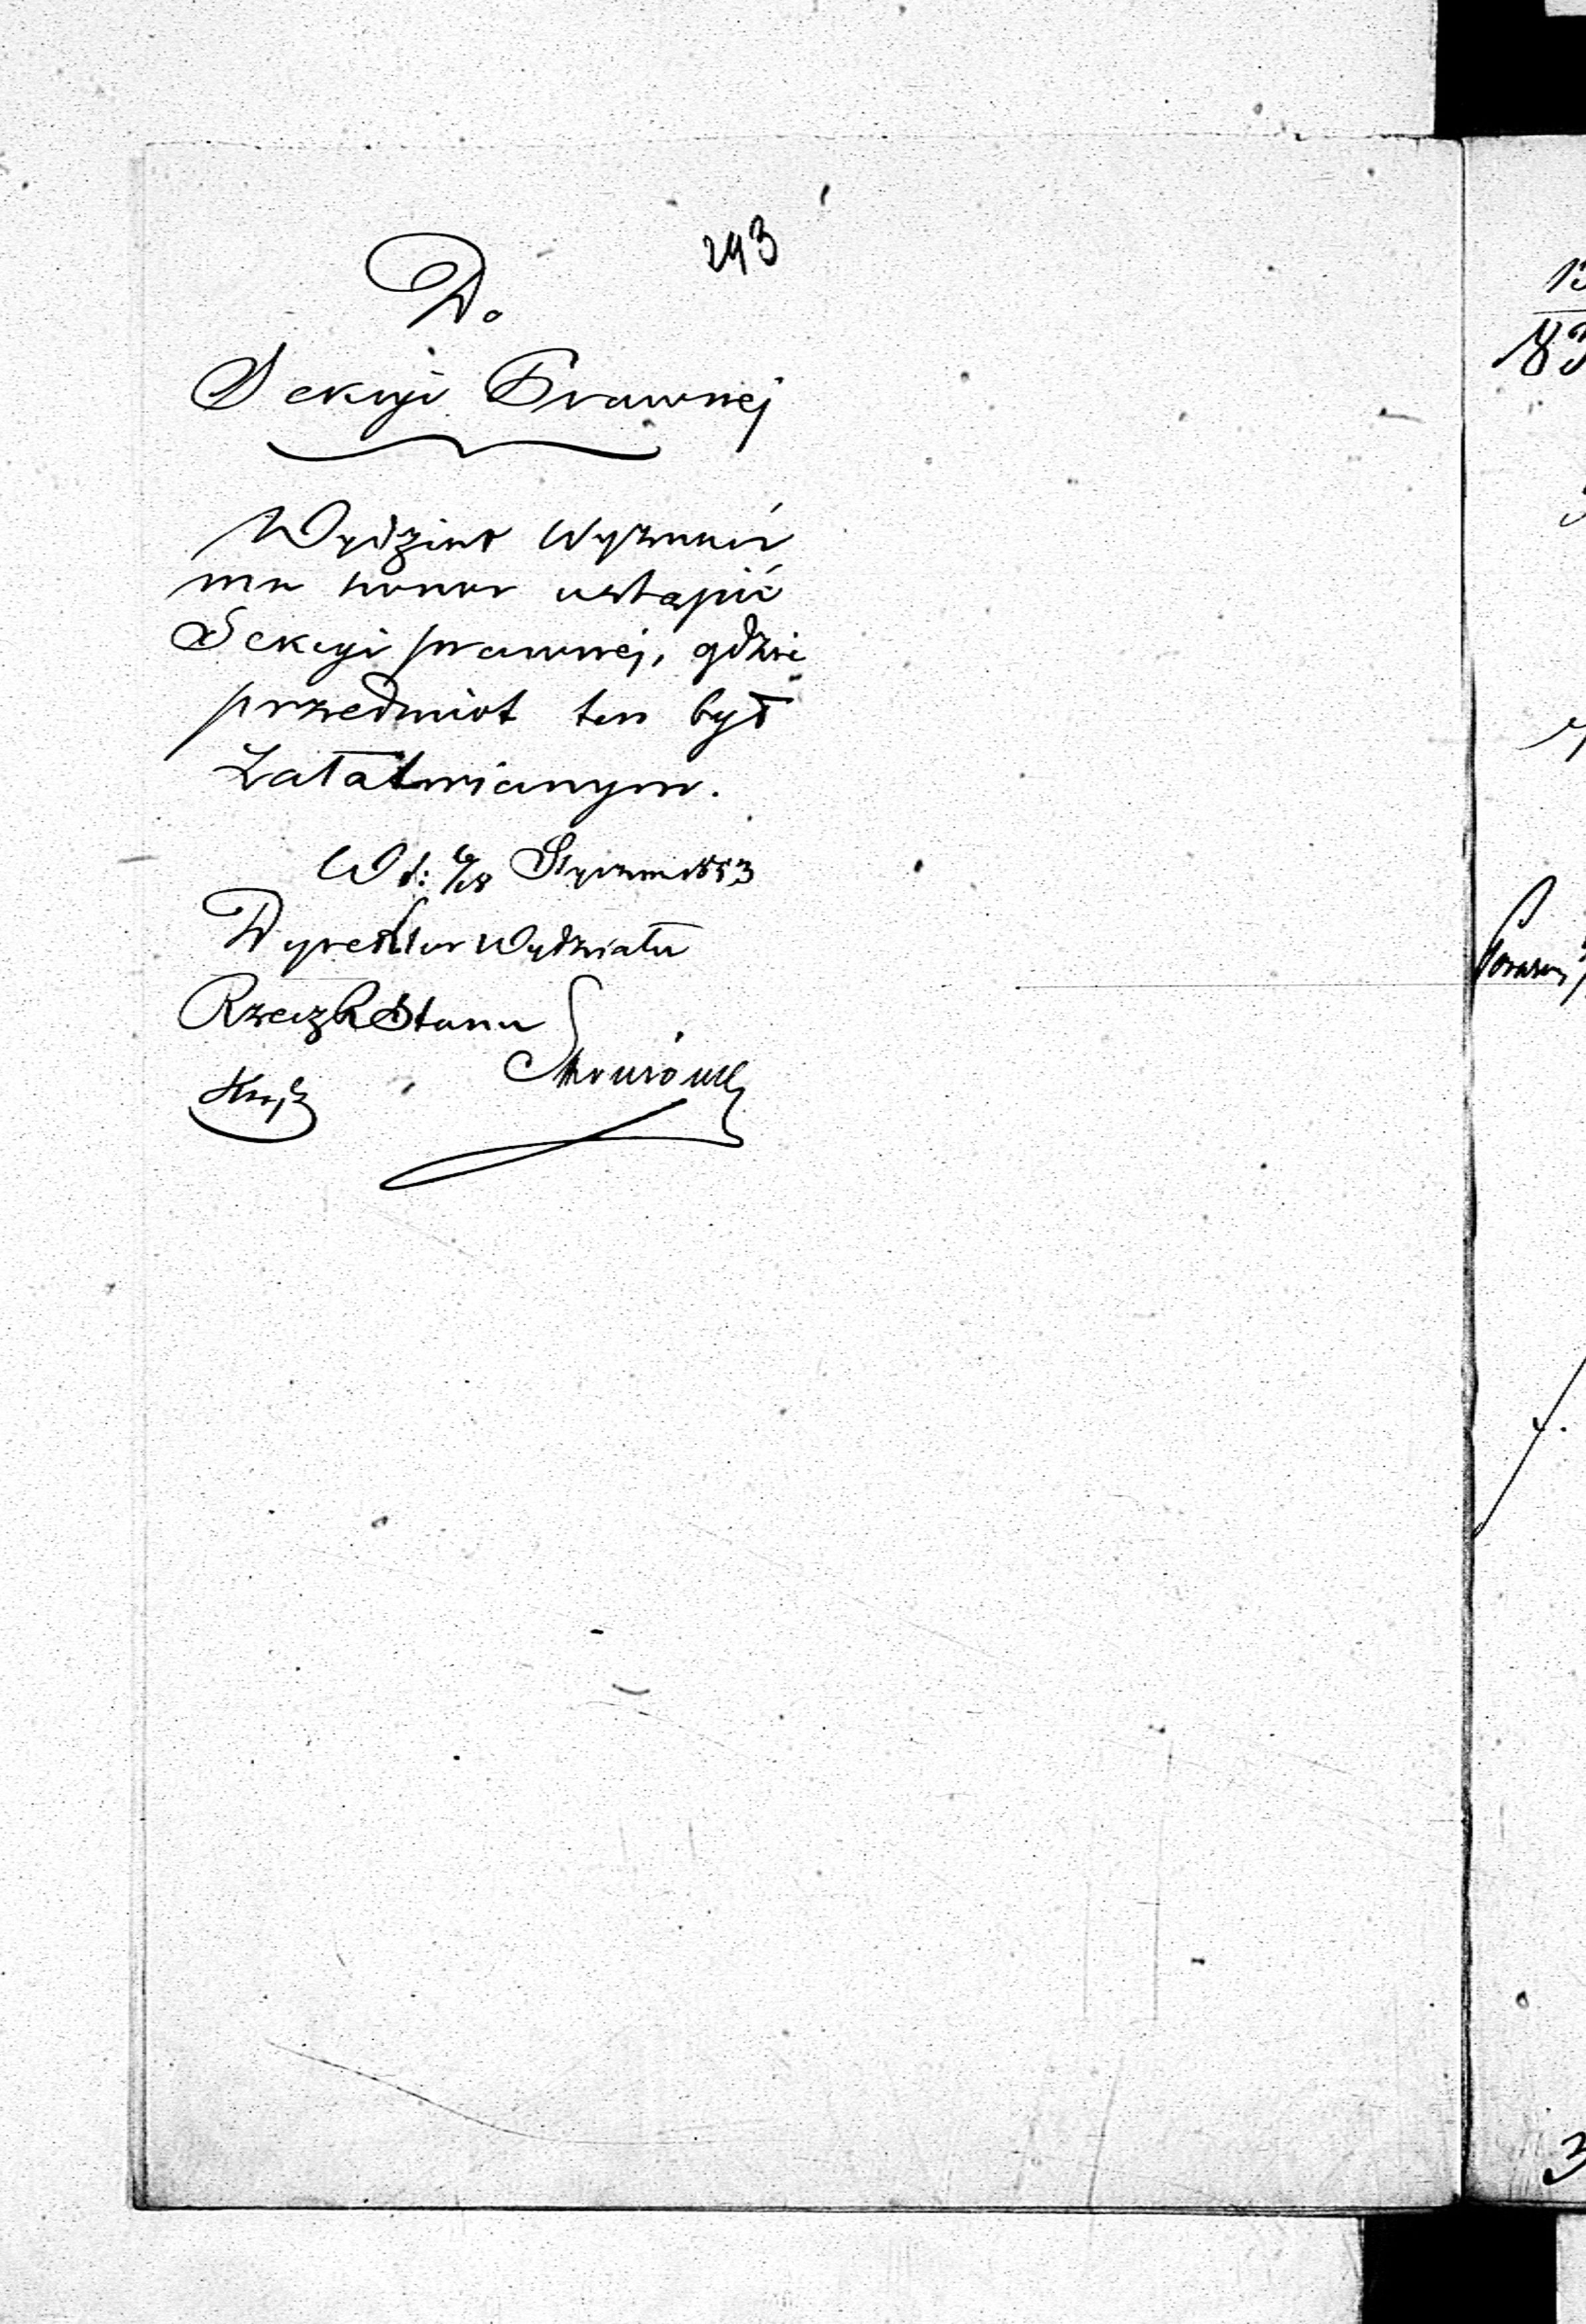 293
Do
Sekcyi Prawnej
Wydział Wyznań
ma honor ustąpić
Sekcyi prawnej, gdzie
przedmiot ten był
załatwianym.
W d: 6/18 Stycznia 1853
Dyrektor Wydziału
Rzecz. R. Stanu